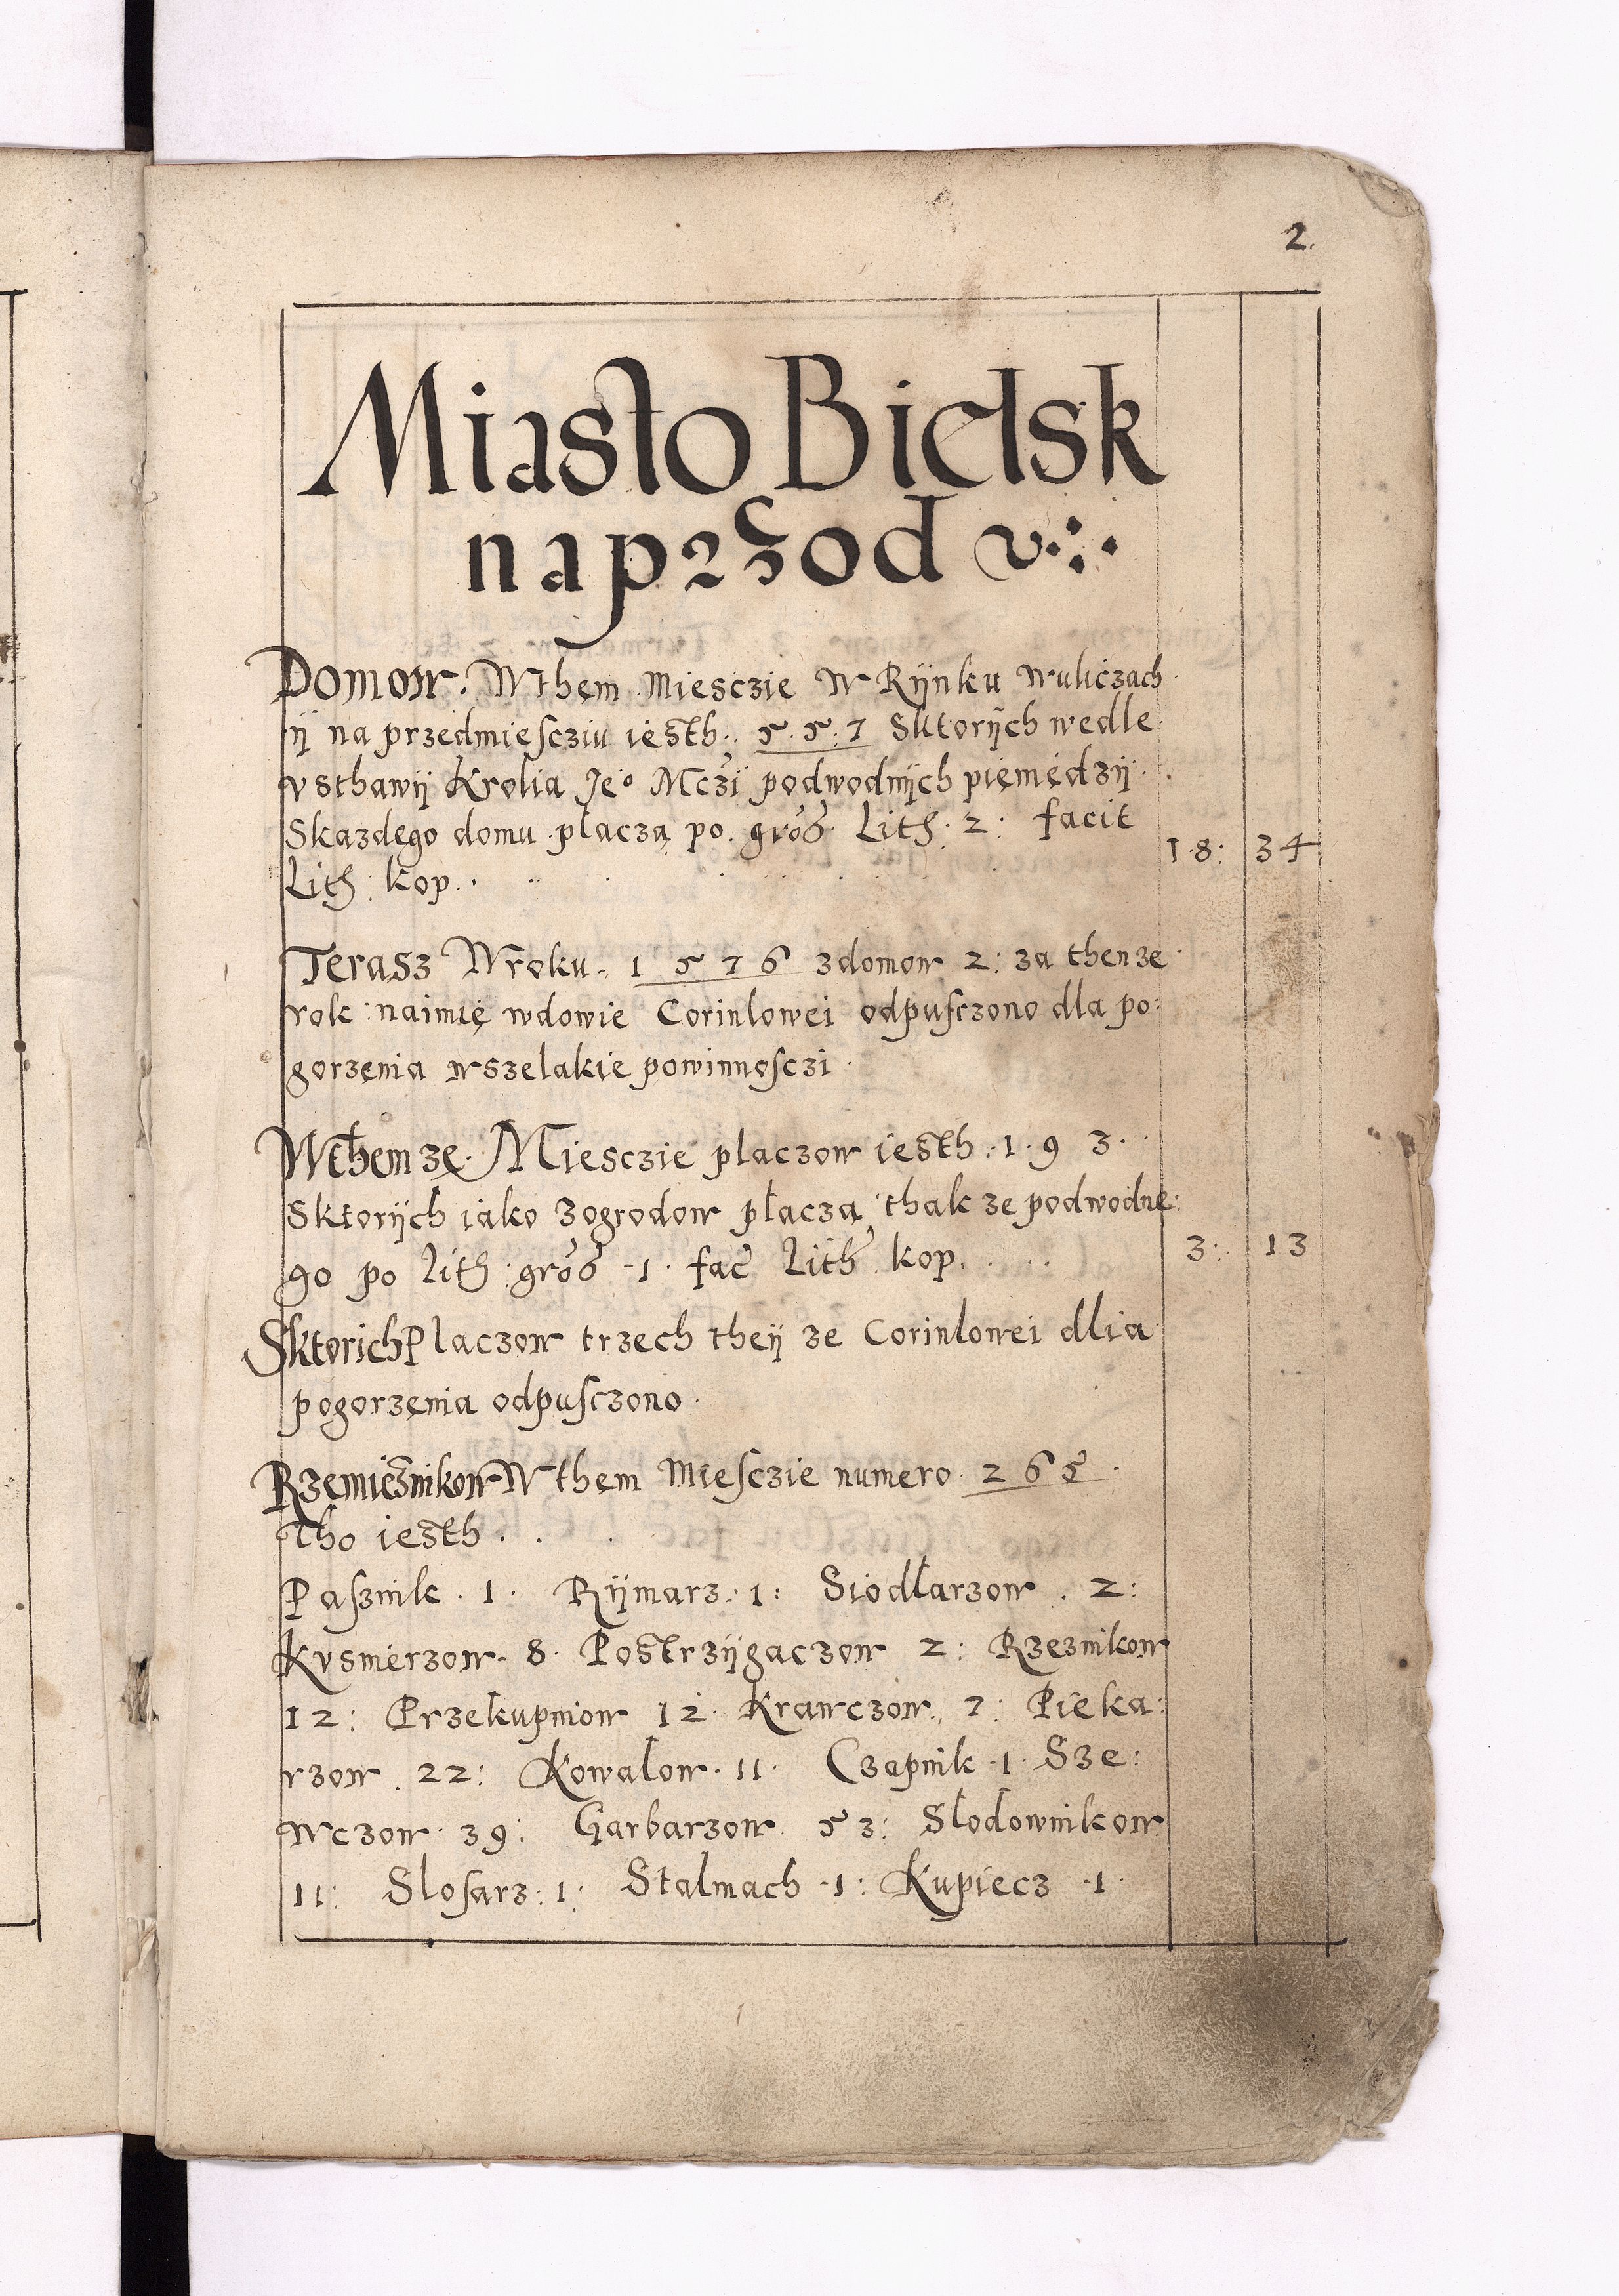 2.
Miasto Bielsk
naprzod
Domow. W them Miesczie W Rÿnku w uliczach
ÿ na przedmiescziu iesth. 5.5.7 Sktorÿch wedle
vsthawÿ Krolia Je° Mczi podwodnÿch pięniędzÿ.
Skazdego domu płaczą po. gros. Lith. 2: facit
Lith: kop. . 1.8: 34
Terasz W roku. 1576 zdomow 2: za then ze
rok naimię wdowie Corinlowei odpusczono dla po:
gorzenia wszelakie powinnosczi.
W them zę. Miesczie placzow iesth. 1.9 3.
Sktorÿch iako zogrodow płaczą thak ze podwodne:
go po Lith gros 1. fac Lith kop. 3: 13
Sktorich Placzow trzech theÿ ze Corinlowei dlia
pogorzenia odpusczono.
Rzemiesnikow W them Miesczie numero. 265.
Tho iesth. . .
Pasznik. 1. Rÿmarz. 1: Siodłarzow. 2:
Kvsmerzow. 8. Postrzÿgaczow 2: Rzeznikow
12: Przekupniow 12. Krawczow. 7: Pieka:
rzow. 22: Kowalow. 11. Czapnik. 1. Sze:
wczow. 39: Garbarzow. 53: Slodownikow
11: Slosarz: 1: Stalmach. 1: Kupiecz. 1.